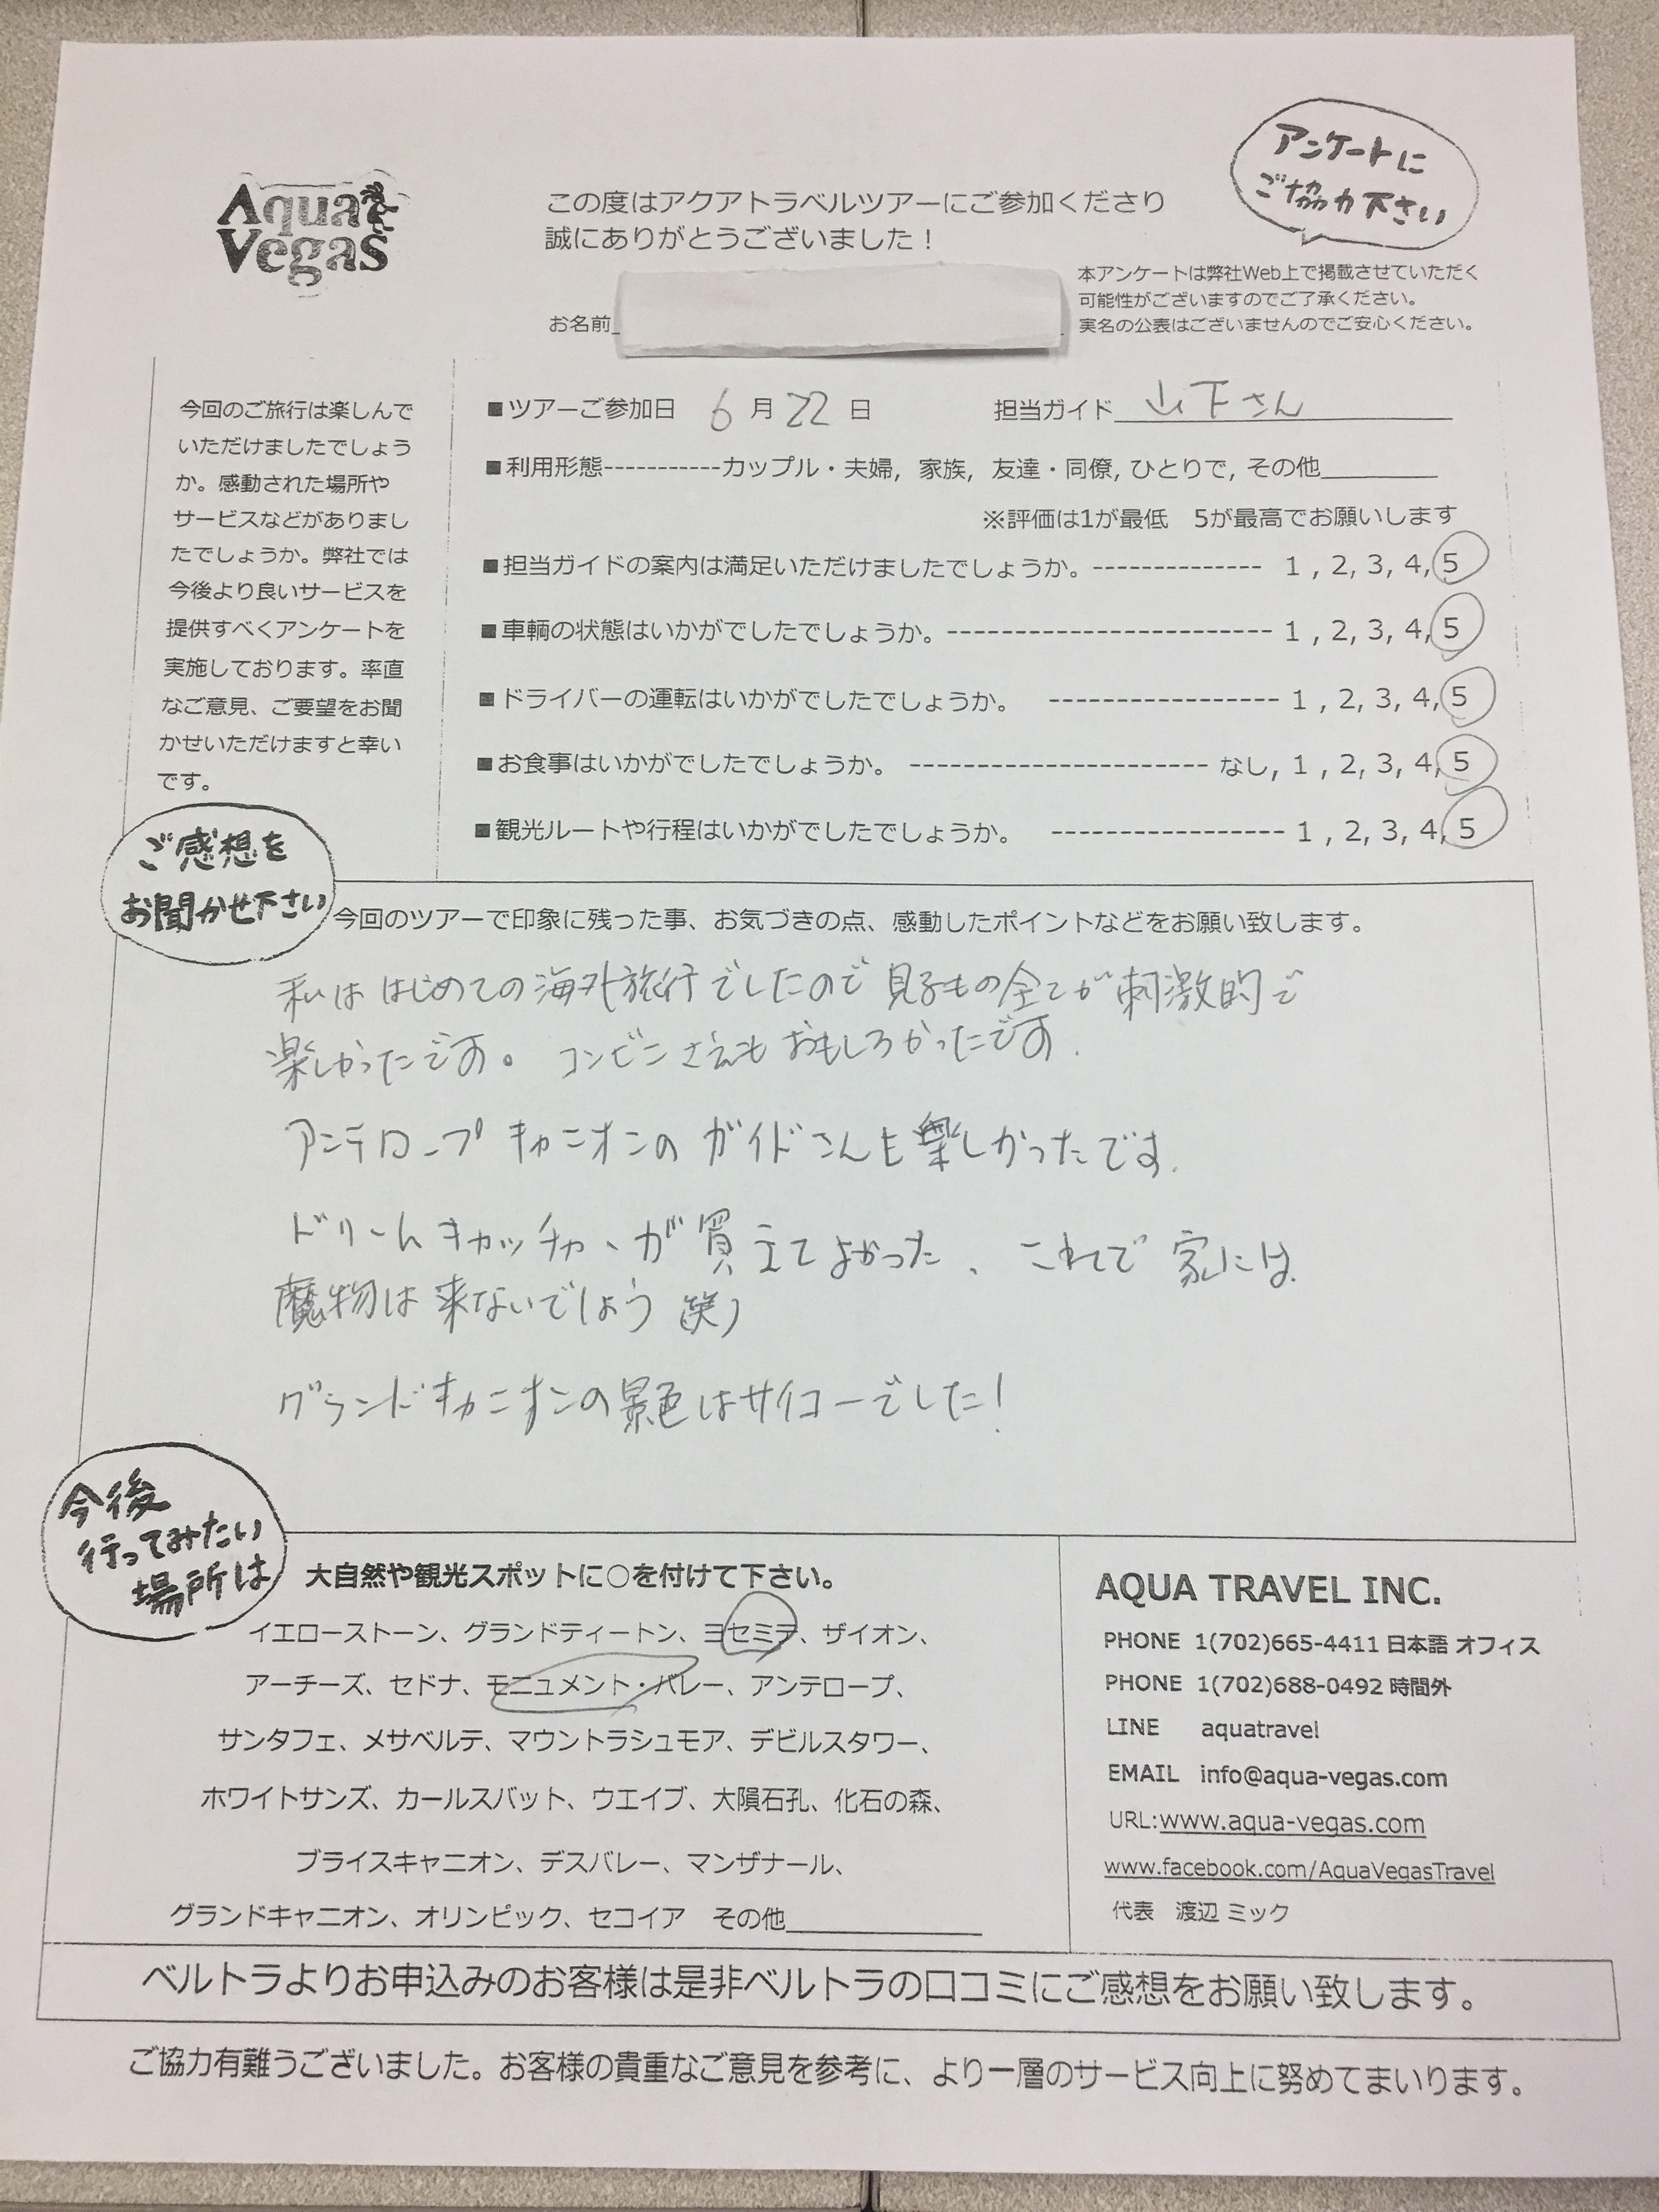 アンケートに
ご協力下さい
Aqua
Vegas
この度はアクアトラベルツアーにご参加くださり
誠にありがとうございました！
お名前
本アンケートは弊社Web上で掲載させていただく
可能性がございますのでご了承ください。
実名の公表はございませんのでご安心ください。
今回のご旅行は楽しんで
いただけましたでしょう
か。感動された場所や
サービスなどがありまし
たでしょうか。弊社では
今後より良いサービスを
提供すべくアンケートを
実施しております。率直
なご意見、ご要望をお聞
かせいただけますと幸い
です。
■ツアーご参加日 6月22日 担当ガイド 山下さん
■利用形態-----------カップル・夫婦, 家族, 友達・同僚, ひとりで, その他
※評価は1が最低 5が最高でお願いします
■担当ガイドの案内は満足いただけましたでしょうか。-------------- 1 , 2, 3, 4, 5
■車輌の状態はいかがでしたでしょうか。--------------------------- 1 , 2, 3, 4, 5
■ドライバーの運転はいかがでしたでしょうか。 ------------------- 1 , 2, 3, 4, 5
■お食事はいかがでしたでしょうか。 ------------------------- なし, 1 , 2, 3, 4, 5
■観光ルートや行程はいかがでしたでしょうか。 ------------------- 1 , 2, 3, 4, 5
ご感想を
お聞かせ下さい
今回のツアーで印象に残った事、お気づきの点、感動したポイントなどをお願い致します。
私は はじめての海外旅行でしたので 見るもの全てが刺激的で
楽しかったです。 コンビニさえも おもしろかったです.
アンテロープ キャニオンの ガイドさんも楽しかったです.
ドリームキャッチャーが買えてよかった、これで 家には
魔物は来ないでしょう (笑)
グランドキャニオンの景色はサイコーでした!
今後
行ってみたい
場所は
大自然や観光スポットに○を付けて下さい。
イエローストーン、グランドティートン、ヨセミテ、ザイオン、
アーチーズ、セドナ、モニュメント・バレー、アンテロープ、
サンタフェ、メサベルテ、マウントラシュモア、デビルスタワー、
ホワイトサンズ、カールスバット、ウエイブ、大隕石孔、化石の森、
ブライスキャニオン、デスバレー、マンザナール、
グランドキャニオン、オリンピック、セコイア その他
AQUA TRAVEL INC.
PHONE 1(702)665-4411 日本語 オフィス
PHONE 1(702)688-0492 時間外
LINE aquatravel
EMAIL info@aqua-vegas.com
URL:www.aqua-vegas.com
www.facebook.com/AquaVegasTravel
代表 渡辺 ミック
ベルトラよりお申込みのお客様は是非ベルトラの口コミにご感想をお願い致します。
ご協力有難うございました。お客様の貴重なご意見を参考に、より一層のサービス向上に努めてまいります。